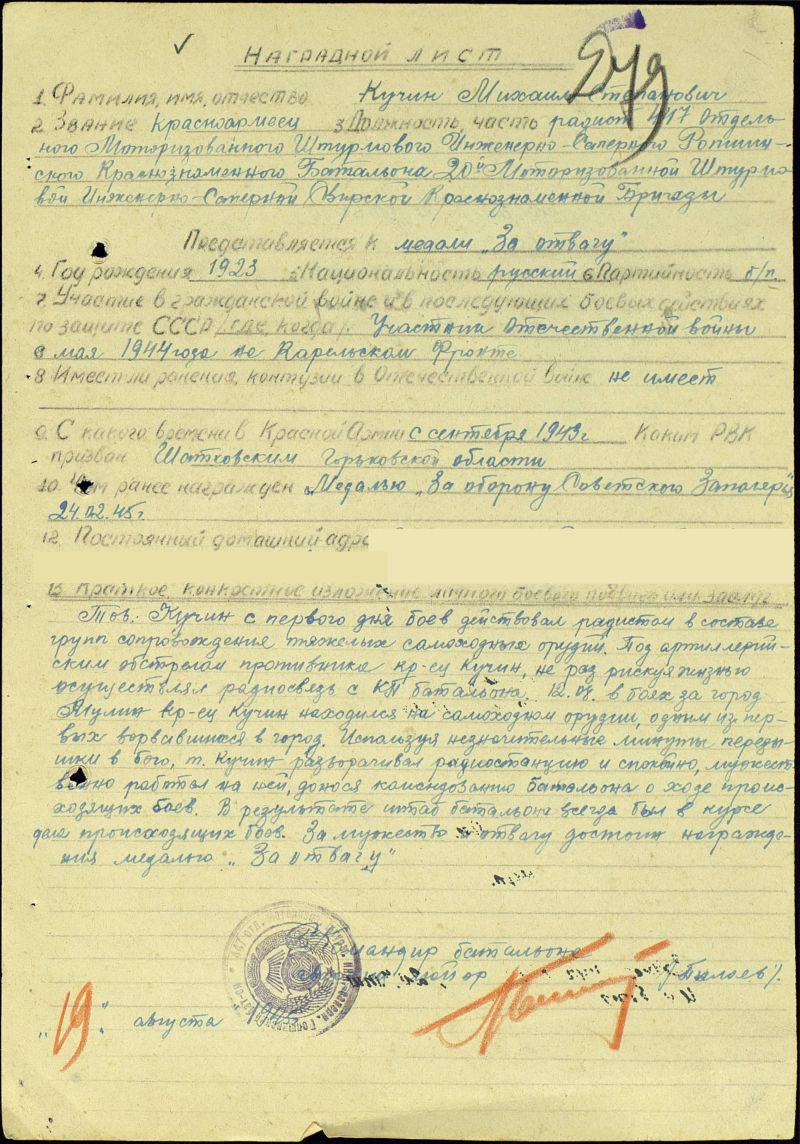 279
НАГРАДНОЙ ЛИСТ
1. Фамилия, имя, отчество Кучин Михаил Степанович
2. Звание Красноармеец 3. Должность, часть радист 417 Отдель-
ного Моторизованного Штурмового Инженерно-Саперного Ропшин-
ского Краснознаменного Батальона 20й Моторизованной Штурмо-
вой Инженерно-Саперной Свирской Краснознаменной Бригады
Представляется к медали „За отвагу"
4. Год рождения 1923 5. Национальность русский 6. Партийность б/п.
7. Участие в гражданской войне и в последующих боевых действиях
по защите СССР /где, когда/. Участник Отечественной войны
с мая 1944 года на Карельском Фронте
8. Имеет ли ранения, контузии в Отечественной войне не имеет
9. С какого времени в Красной Армии с сентября 1943 г Каким РВК
призван Шатковским Горьковской области
10. Чем ранее награжден „Медалью „За оборону Советского Заполярья"
24.02.45г.
12. Постоянный домашний адре
13. Краткое, конкретное изложение личного боевого подвига или заслуг
Тов. Кучин с первого дня боев действовал радистом в составе
групп сопровождения тяжелых самоходных орудий. Под артиллерий-
ским обстрелом противника кр-ец Кучин, не раз рискуя жизнью
осуществлял радиосвязь с КП батальона. 12.08. в боях за город
Мулин кр-ец Кучин находился на самоходном орудии, одним из пер-
вых ворвавшихся в город. Используя незначительные минуты передыш-
шки в бою, т. Кучин разворачивал радиостанцию и спокойно, мужест-
венно работал на ней, донося командованию батальона о ходе проис-
ходящих боев. В результате штаб батальона всегда был в курсе
дела происходящих боев. За мужество и отвагу достоин награжде-
ния медалью „За отвагу"
Командир батальона
майор
„19" августа 194